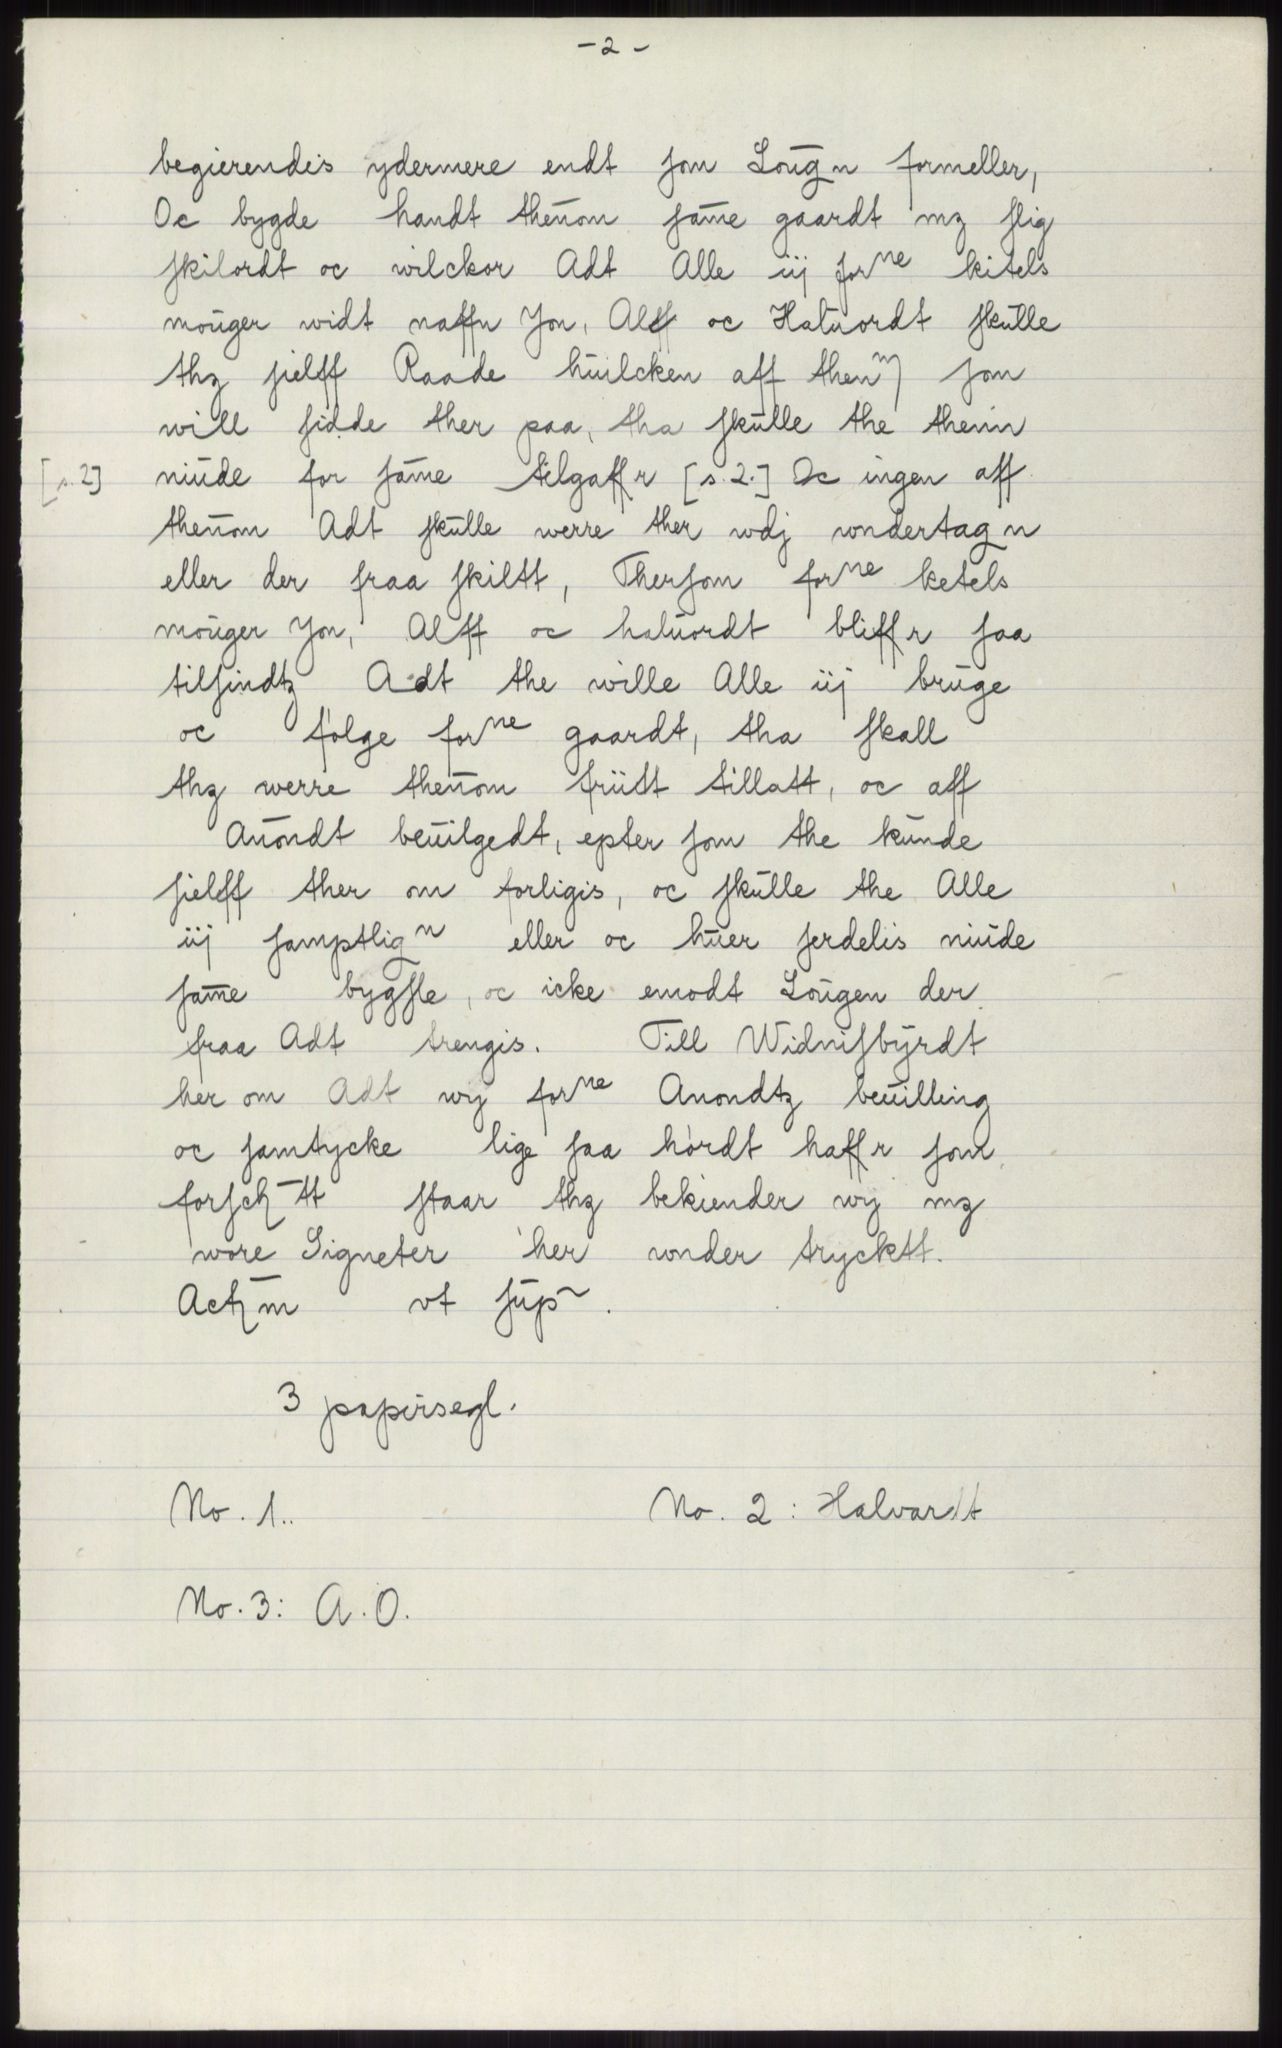 - 2 -
begierendis ydermere endt ſom Loūgn formeller,
Oc bygde handt thenom ſam̄e gaardt mꝫ ſlig
ſkilordt oc wilckor Adt Alle iij forⁿᵉ kitels
moūger widt naffn Jon, Alff oc Haluordt ſkūlle
thꝫ ſielff Raade hūilcken aff then ſom
will ſidde ther paa, tha ſkūlle the thenn
niūde for ſam̄e tilgaffr [s. 2.] Oc ingen aff
[s. 2]
thenom Adt ſkūlle werre ther wdj wndertagn
eller der fraa ſkiltt, Therſom forⁿᵉ ketels
moūger Jon, Alff oc haluordt bliffr ſaa
tilſindtꝫ Adt the wille Alle iij brūge
oc følge forⁿᵉ gaardt, tha ſkall
thꝫ werre thenom friitt tillatt, oc aff
Anōndt beuilgedt, epter ſom the kūnde
ſielff ther om forligis, oc ſkūlle the Alle
iij ſamptligⁿ eller oc hūer ſerdelis niūde
ſam̄e bygſle, oc icke emodt Loūgen der
fraa Adt trengis. Till Widniſbyrdt
her om Adt wy forⁿᵉ Anondtꝫ beuilling
oc ſamtycke lige ſaa hørdt haffr ſom
forſch̄tt ſtaar thꝫ bekiender wy mꝫ
wore Signeter her wnder trycktt.
Actm̄ vt ſūp̄.
3 papirsegl.
No. 1.. No. 2 : Halvardt
No. 3: A. O.